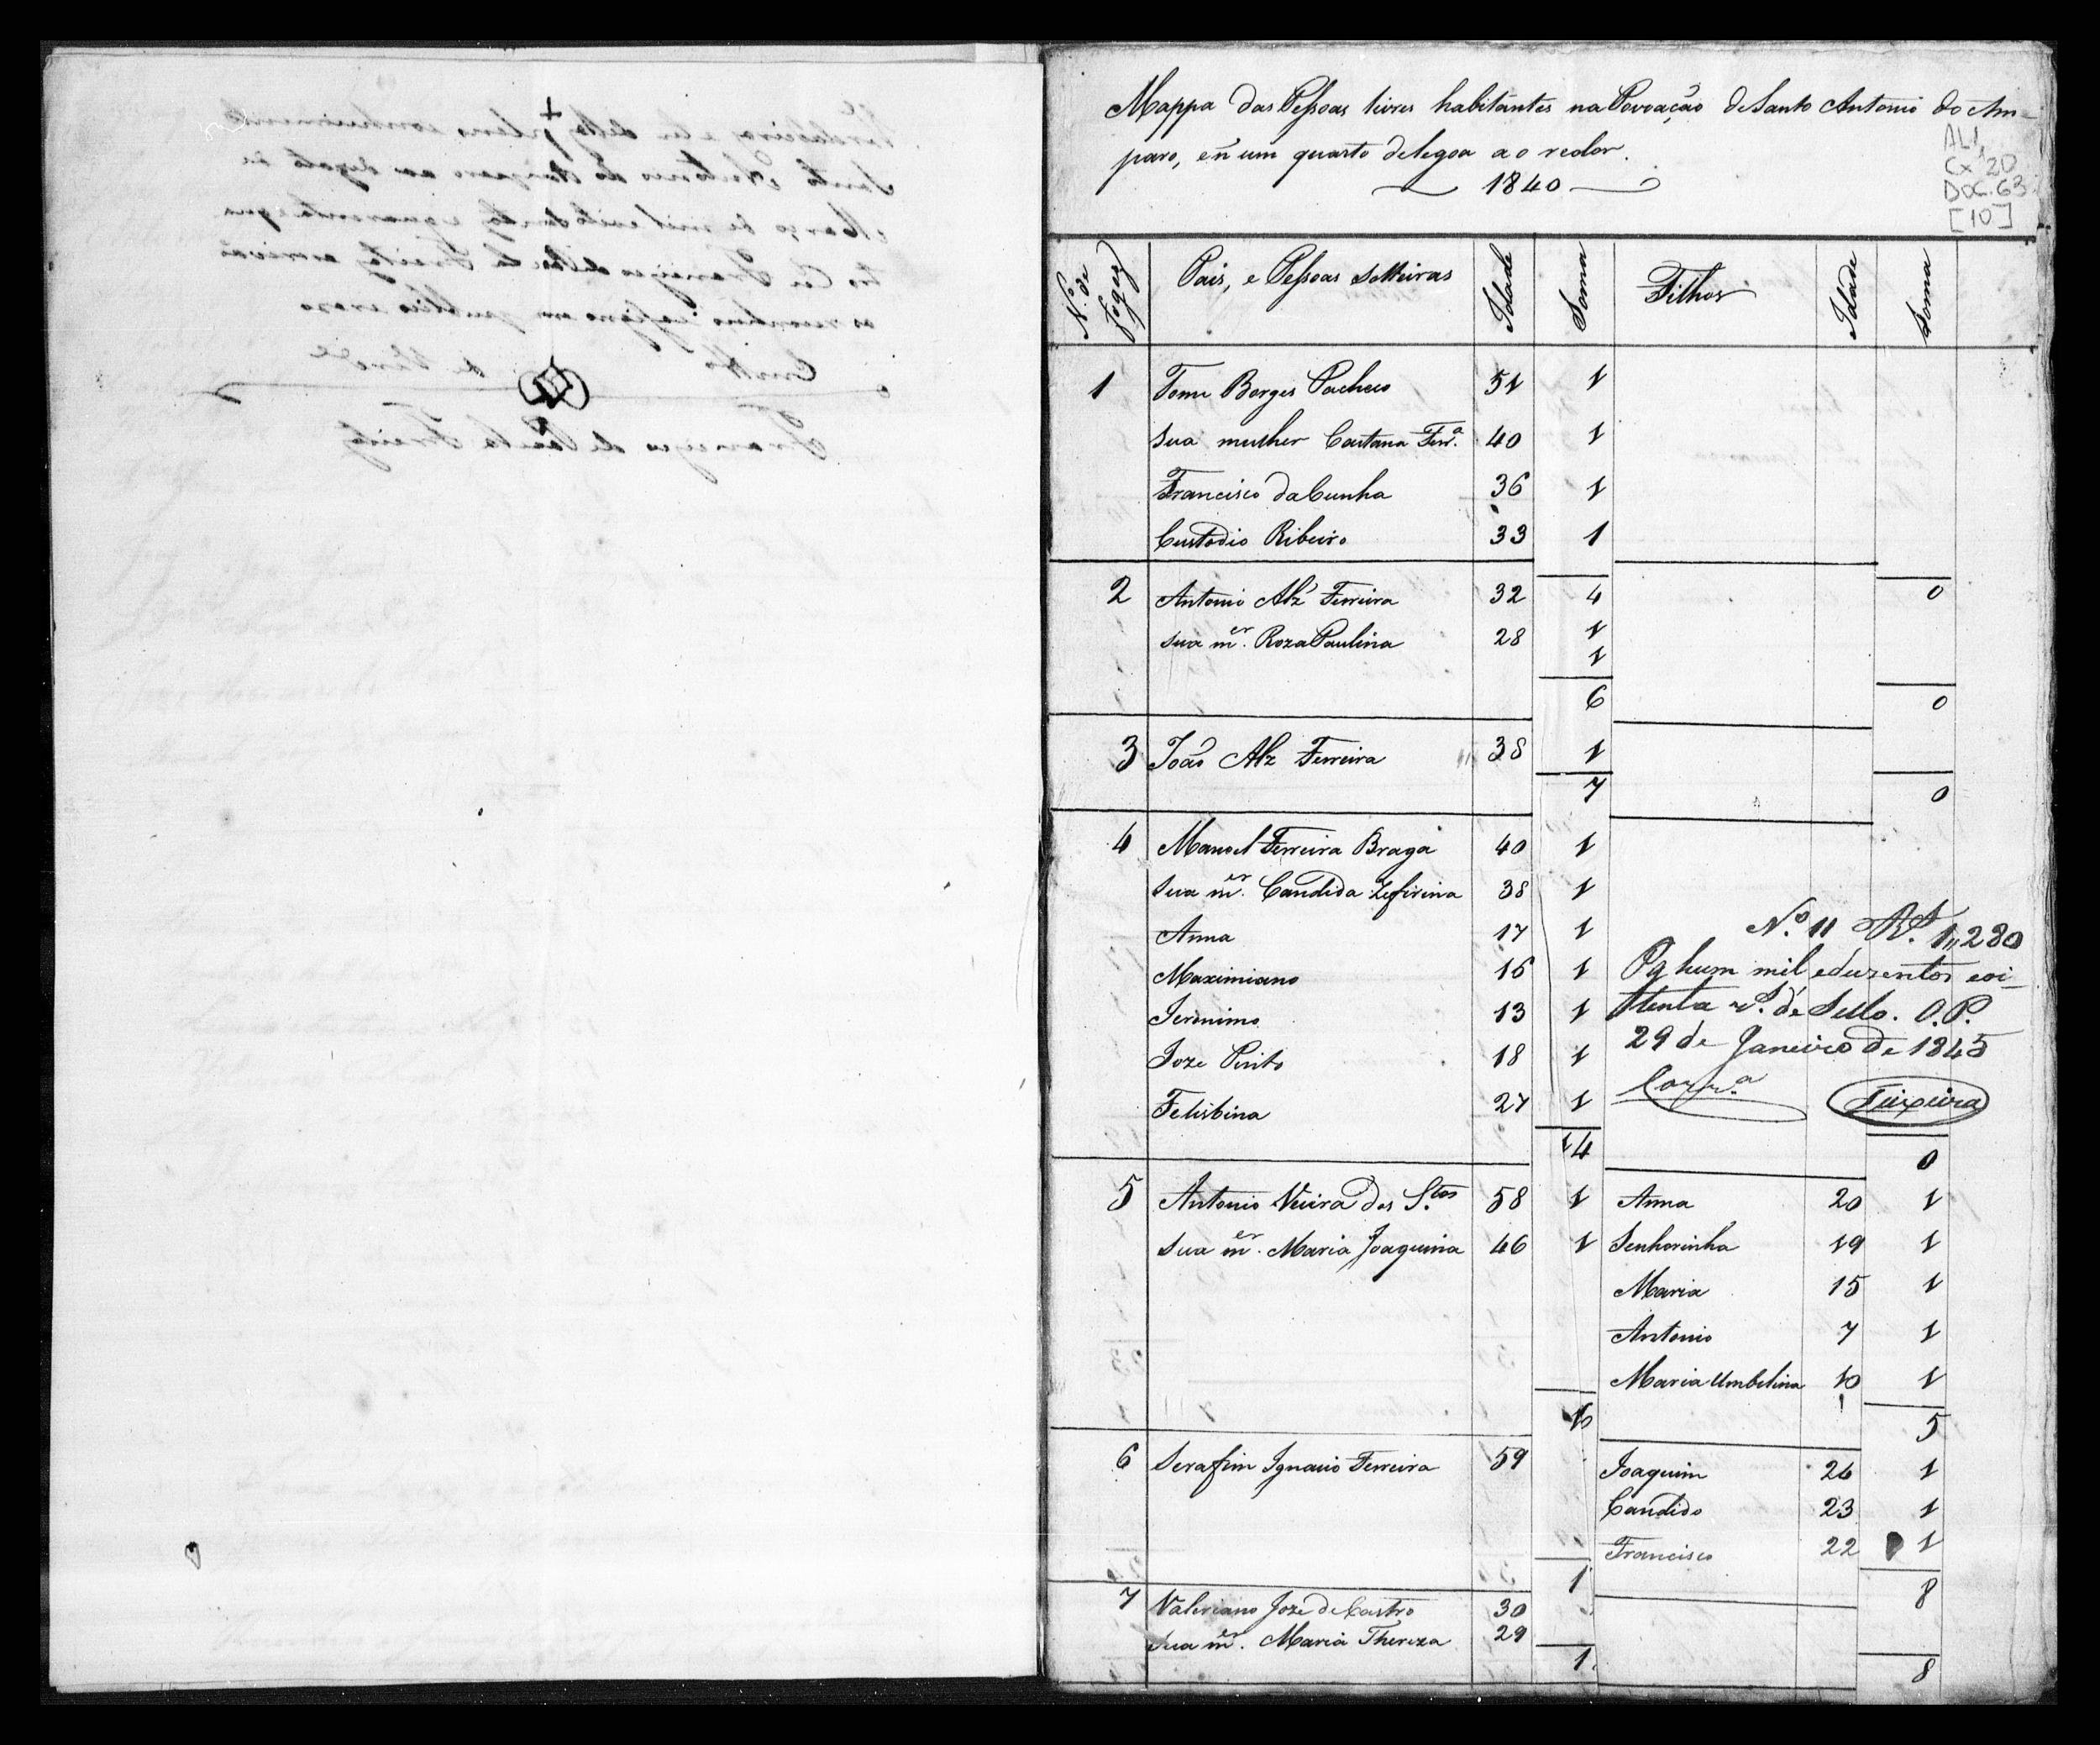 Mappa das Pessoas livres habitantes na Povoação de Santo Antonio do Am-
paro, e em um quarto de legoa ao redor.
1840
AL1
Cx 20
DOC. 63
[10]
N.º de Fogos Pais, e Pessoas Solteiras Idade Soma Filhos Idade Soma
1 Tome Borges Pacheco 51 1
sua mulher Caetana Ferr.ª 40 1
Francisco da Cunha 36 1
Custodio Ribeiro 33 1
2 Antonio Alz' Ferreira 32 4 0
sua m.er Roza Paulina 28 1
1
6 0
3 João Alz Ferreira 38 1
7 0
4 Manoel Ferreira Braga 40 1
sua m.er Candida Zefirina 38 1
Anna 17 1
Maximiano 16 1
Jeronimo 13 1
Joze Pinto 18 1
Felisbina 27 1
14 0
N.º 11 R.s 1,,280
Pg hum mil eduzentos eoi-
tenta r.s de Sello. O. P.
29 de Janeiro de 1845
Corr.ª Teixeira
5 Antonio Vieira dos S.tos 58 1 Anna 20 1
sua m.er Maria Joaquina 46 1 Senhorinha 19 1
Maria 15 1
Antonio 7 1
Maria Umbelina 10 1
5
6 Serafim Ignacio Ferreira 59 Joaquim 26 1
Candido 23 1
Francisco 22 1
1 8
7 Valeriano Joze de Castro 30
sua m.er Maria Thereza 29
1 8